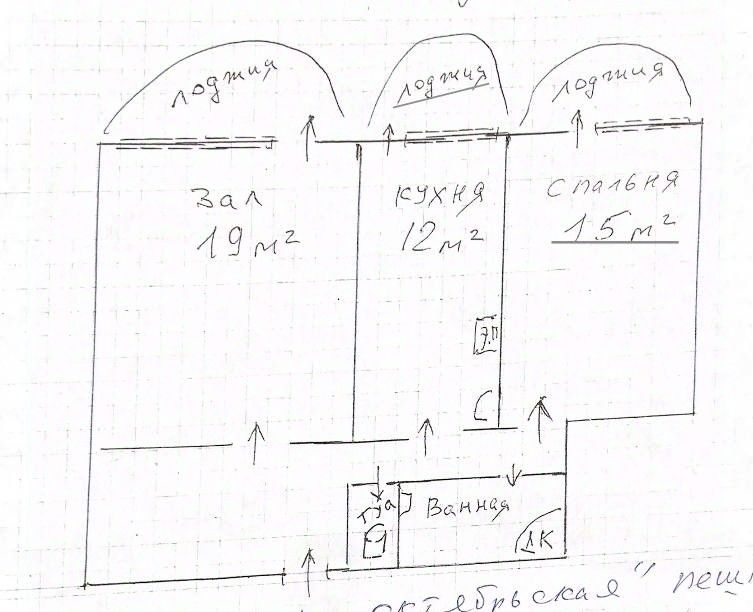 лоджия
лоджия
лоджия
Зал
19 м²
кухня
12 м²
спальня
15 м²
Э.П
Туа
Ванная
ДК
октябрьская" пеш